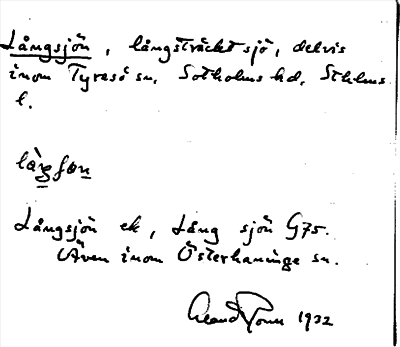 Långsjön, långsträckt sjö, delvis
inom Tyresö sn, Sotholms hd, Sthlms
l.
Långsjön ek, Lång sjön G75.
Även inom Österhaninge sn.
1932